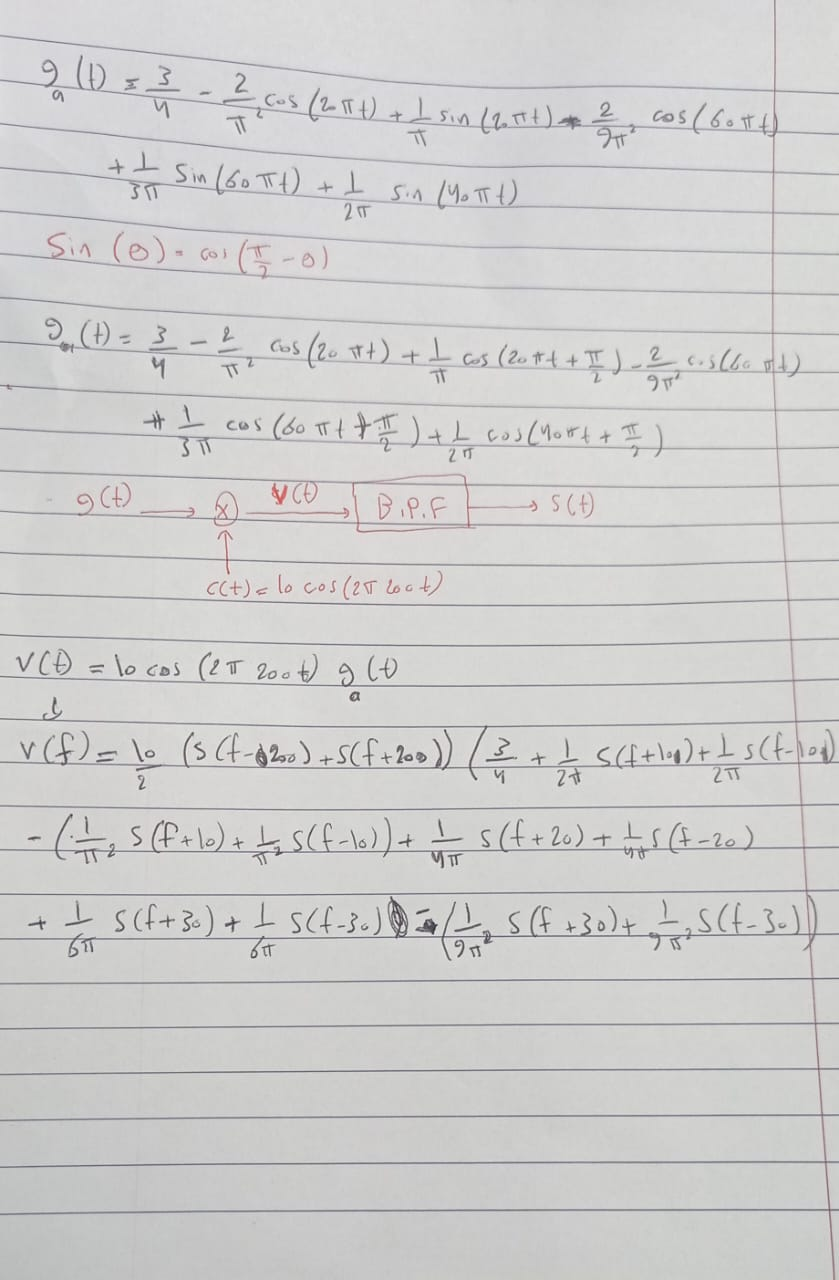 g_a(t) = 3/4 - 2/π² cos(20πt) + 1/π sin(20πt) - 2/9π² cos(60πt)
+ 1/3π Sin(60πt) + 1/2π sin(40πt)
Sin(θ) = cos(π/2 - θ)
g_a(t) = 3/4 - 2/π² cos(20πt) + 1/π cos(20πt + π/2) - 2/9π² cos(60πt)
+ 1/3π cos(60πt + π/2) + 1/2π cos(40πt + π/2)
g(t) → ⊗ V(t) → B.P.F → S(t)
↑
c(t) = 10 cos(2π 200t)
V(t) = 10 cos(2π 200t) g_a(t)
↓
V(f) = 10/2 (S(f-200) + S(f+200)) (3/4 + 1/2π S(f+10) + 1/2π S(f-10)
- (1/π² S(f+10) + 1/π² S(f-10)) + 1/4π S(f+20) + 1/4π S(f-20)
+ 1/6π S(f+30) + 1/6π S(f-30) - (1/9π² S(f+30) + 1/9π² S(f-30))